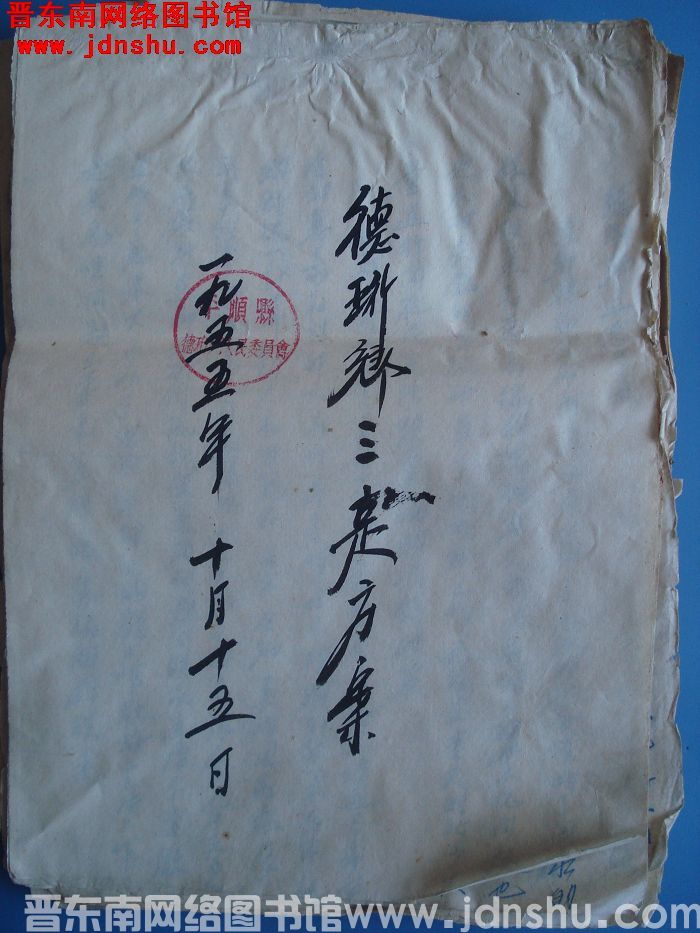 晋东南网络图书馆
www.jdnshu.com
德珩鄉三定方案
一九五五年 十月十五日
順縣
人民委員會
晋东南网络图书馆 www.jdnshu.com